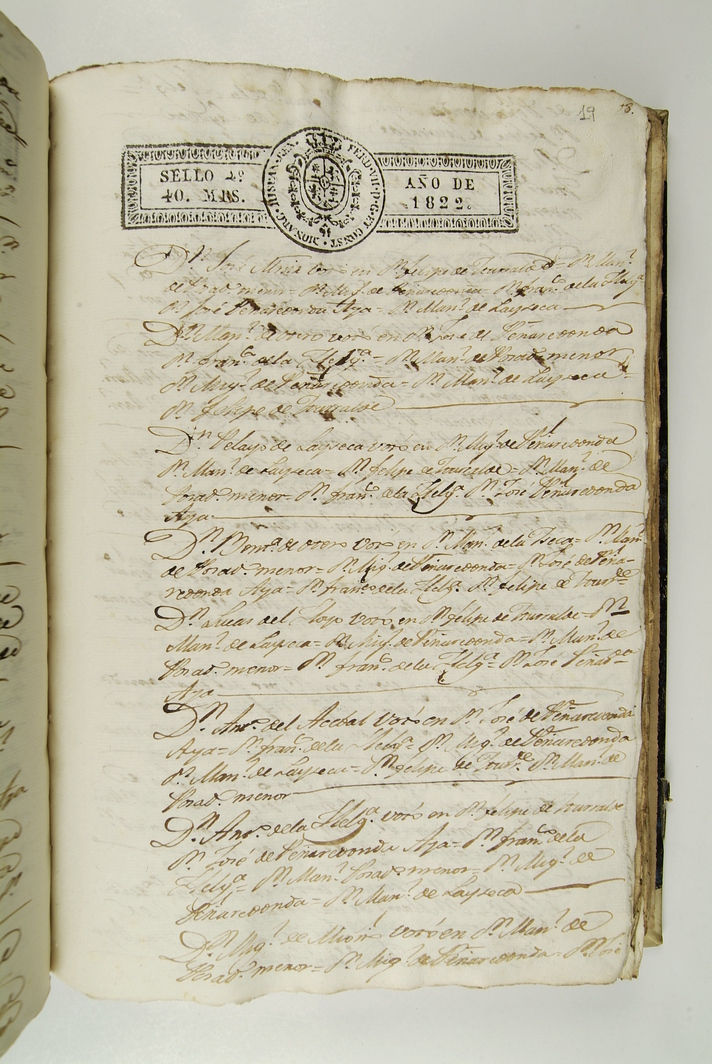 19
18.
SELLO 4º
40. MRS.
HISPAN. REX. FERD. VII. D. G. ET CONST. MONARC.
AÑO DE
1822.
Dⁿ José votó en Dⁿ felipe de Iturralde = Dⁿ Manˡ
de Posad. menor = Dⁿ Migˡ de Peñaredonda = Dⁿ franᶜᵒ de la Helgᵃ
Dⁿ José Peñaredonda Aya = Dⁿ Manˡ de Layseca
Dⁿ Manˡ de otero votó en Dⁿ José de Peñaredonda
Dⁿ franᶜᵒ de la Helgᵃ = Dⁿ Manˡ de Posad. menor
Dⁿ Migˡ de Peñaredonda = Dⁿ Manˡ de Layseca =
Dⁿ felipe de Iturralde
Dⁿ Pelayo de Layseca votó en Dⁿ Migˡ de Peñaredonda
Dⁿ Manˡ de Layseca = Dⁿ felipe de Iturralde = Dⁿ Manˡ de
Posad. menor = Dⁿ franᶜᵒ de la Helgᵃ Dⁿ José Peñaredonda
Aya
Dⁿ de otero votó en Dⁿ Manˡ de la = Dⁿ Manˡ
de Posad. menor = Dⁿ Migˡ de Peñaredonda = Dⁿ José de Peña-
redonda Aya = Dⁿ franᶜᵒ de la Helgᵃ Dⁿ felipe de Iturrᵈᵉ
Dⁿ Lucas del Hoyo votó en Dⁿ felipe de Iturralde = Dⁿ
Manˡ de Layseca = Dⁿ Migˡ de Peñaredonda = Dⁿ Manˡ de
Posad. menor = Dⁿ franᶜᵒ de la Helgᵃ = Dⁿ José Peñarᵈᵃ
Aya
Dⁿ Antᵒ del Acebal votó en Dⁿ José de Peñaredonda
Aya = Dⁿ franᶜᵒ de la Helgᵃ = Dⁿ Migˡ de Peñaredonda
Dⁿ Manˡ de Layseca = Dⁿ felipe de Iturrᵈᵉ Dⁿ Manˡ de
Posad. menor
Dⁿ Antᵒ de la Helgᵃ votó en Dⁿ felipe de Iturralde
Dⁿ José de Peñaredonda Aya = Dⁿ franᶜᵒ de la
Helgᵃ = Dⁿ Manˡ Posad. menor = Dⁿ Migˡ de
Peñaredonda = Dⁿ Manˡ de Layseca
Dⁿ Migˡ de votó en Dⁿ Manˡ de
Posad. menor = Dⁿ Migˡ de Peñaredonda = Dⁿ José